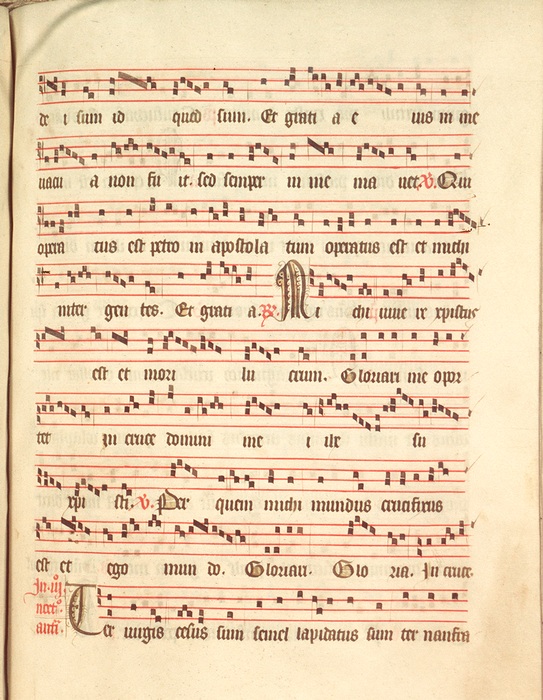 de i sum id quod sum. Et grati a e ius in me
uacu a non fu it. sed semper in me ma net. V. Qui
opera tus est petro in apostola tum operatus est et michi
inter gen tes. Et grati a. R. Mi chi uiue re xpistus
est et mori lu crum. Gloriari me opor
tet in cruce domini me i ihe su
xpi sti. V. Per quem michi mundus crucifixus
est et ego mun do. Gloriari. Glo ria. In cruce.
In .iij.
noct.
anti.
Ter uirgis cesus sum semel lapidatus sum ter naufra